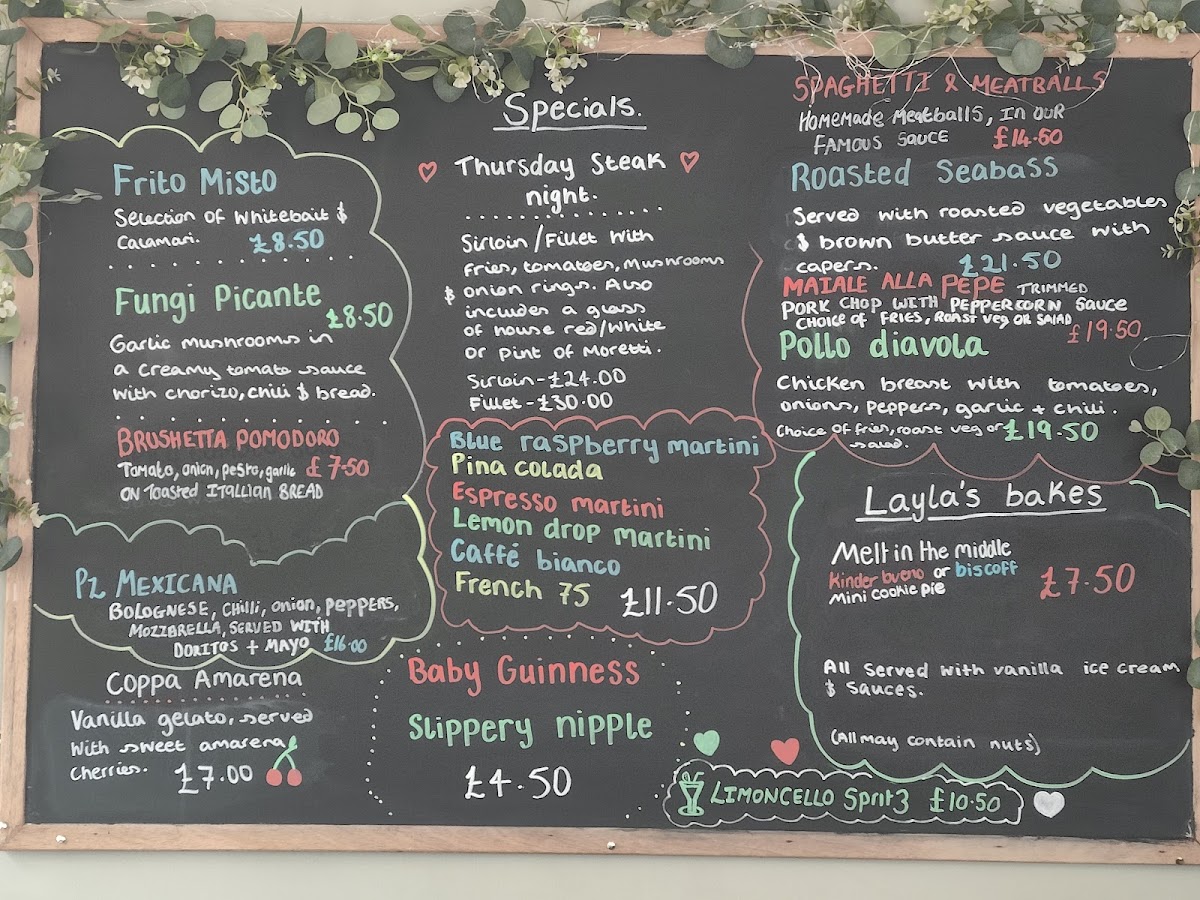 Specials.
Frito Misto
Selection of Whitebait &
Calamari. £8.50
Fungi Picante
£8.50
Garlic mushrooms in
a creamy tomato sauce
with chorizo, chili & bread.
BRUSHETTA POMODORO
Tomato, onion, pesto, garlic £7.50
ON Toasted ITALLIAN BREAD
Pz MEXICANA
BOLOGNESE, chilli, onion, peppers,
MOZZBRELLA, SERVED WITH
DORITOS + MAYO £16.00
COPPA AMARENA
Vanilla gelato, served
with sweet amarena
cherries. £7.00
Thursday Steak
night.
Sirloin/Fillet with
fries, tomatoes, Musnrooms
& onion rings. Also
includes a glass
of house red/white
or pint of Moretti.
Sirloin - £24.00
Fillet - £30.00
Blue raspberry martini
Pina colada
Espresso martini
Lemon drop martini
Caffé bianco
French 75 £11.50
Baby Guinness
Slippery nipple
£4.50
SPAGHETTI & MEATBALLS
Homemade Meatballs, IN OUR
FAMOUS SAUCE £14.50
Roasted Seabass
Served with roasted vegetables
& brown butter sauce with
capers. £21.50
MAIALE ALLA PEPE TRIMMED
PORK CHOP WITH PEPPERCORN SAUCE
CHOICE of FRIES, ROAST VEG OR SALAD
£19.50
Pollo diavola
Chicken breast with tomatoes,
onions, peppers, garlic + chili.
Choice of fries, roast veg or £19.50
salad.
Layla's bakes
Melt in the middle
Kinder bueno or biscoff
Mini cookie pie £7.50
All Served with vanilla ice cream
& sauces.
(All may contain nuts)
LIMONCELLO Sprit3 £10.50